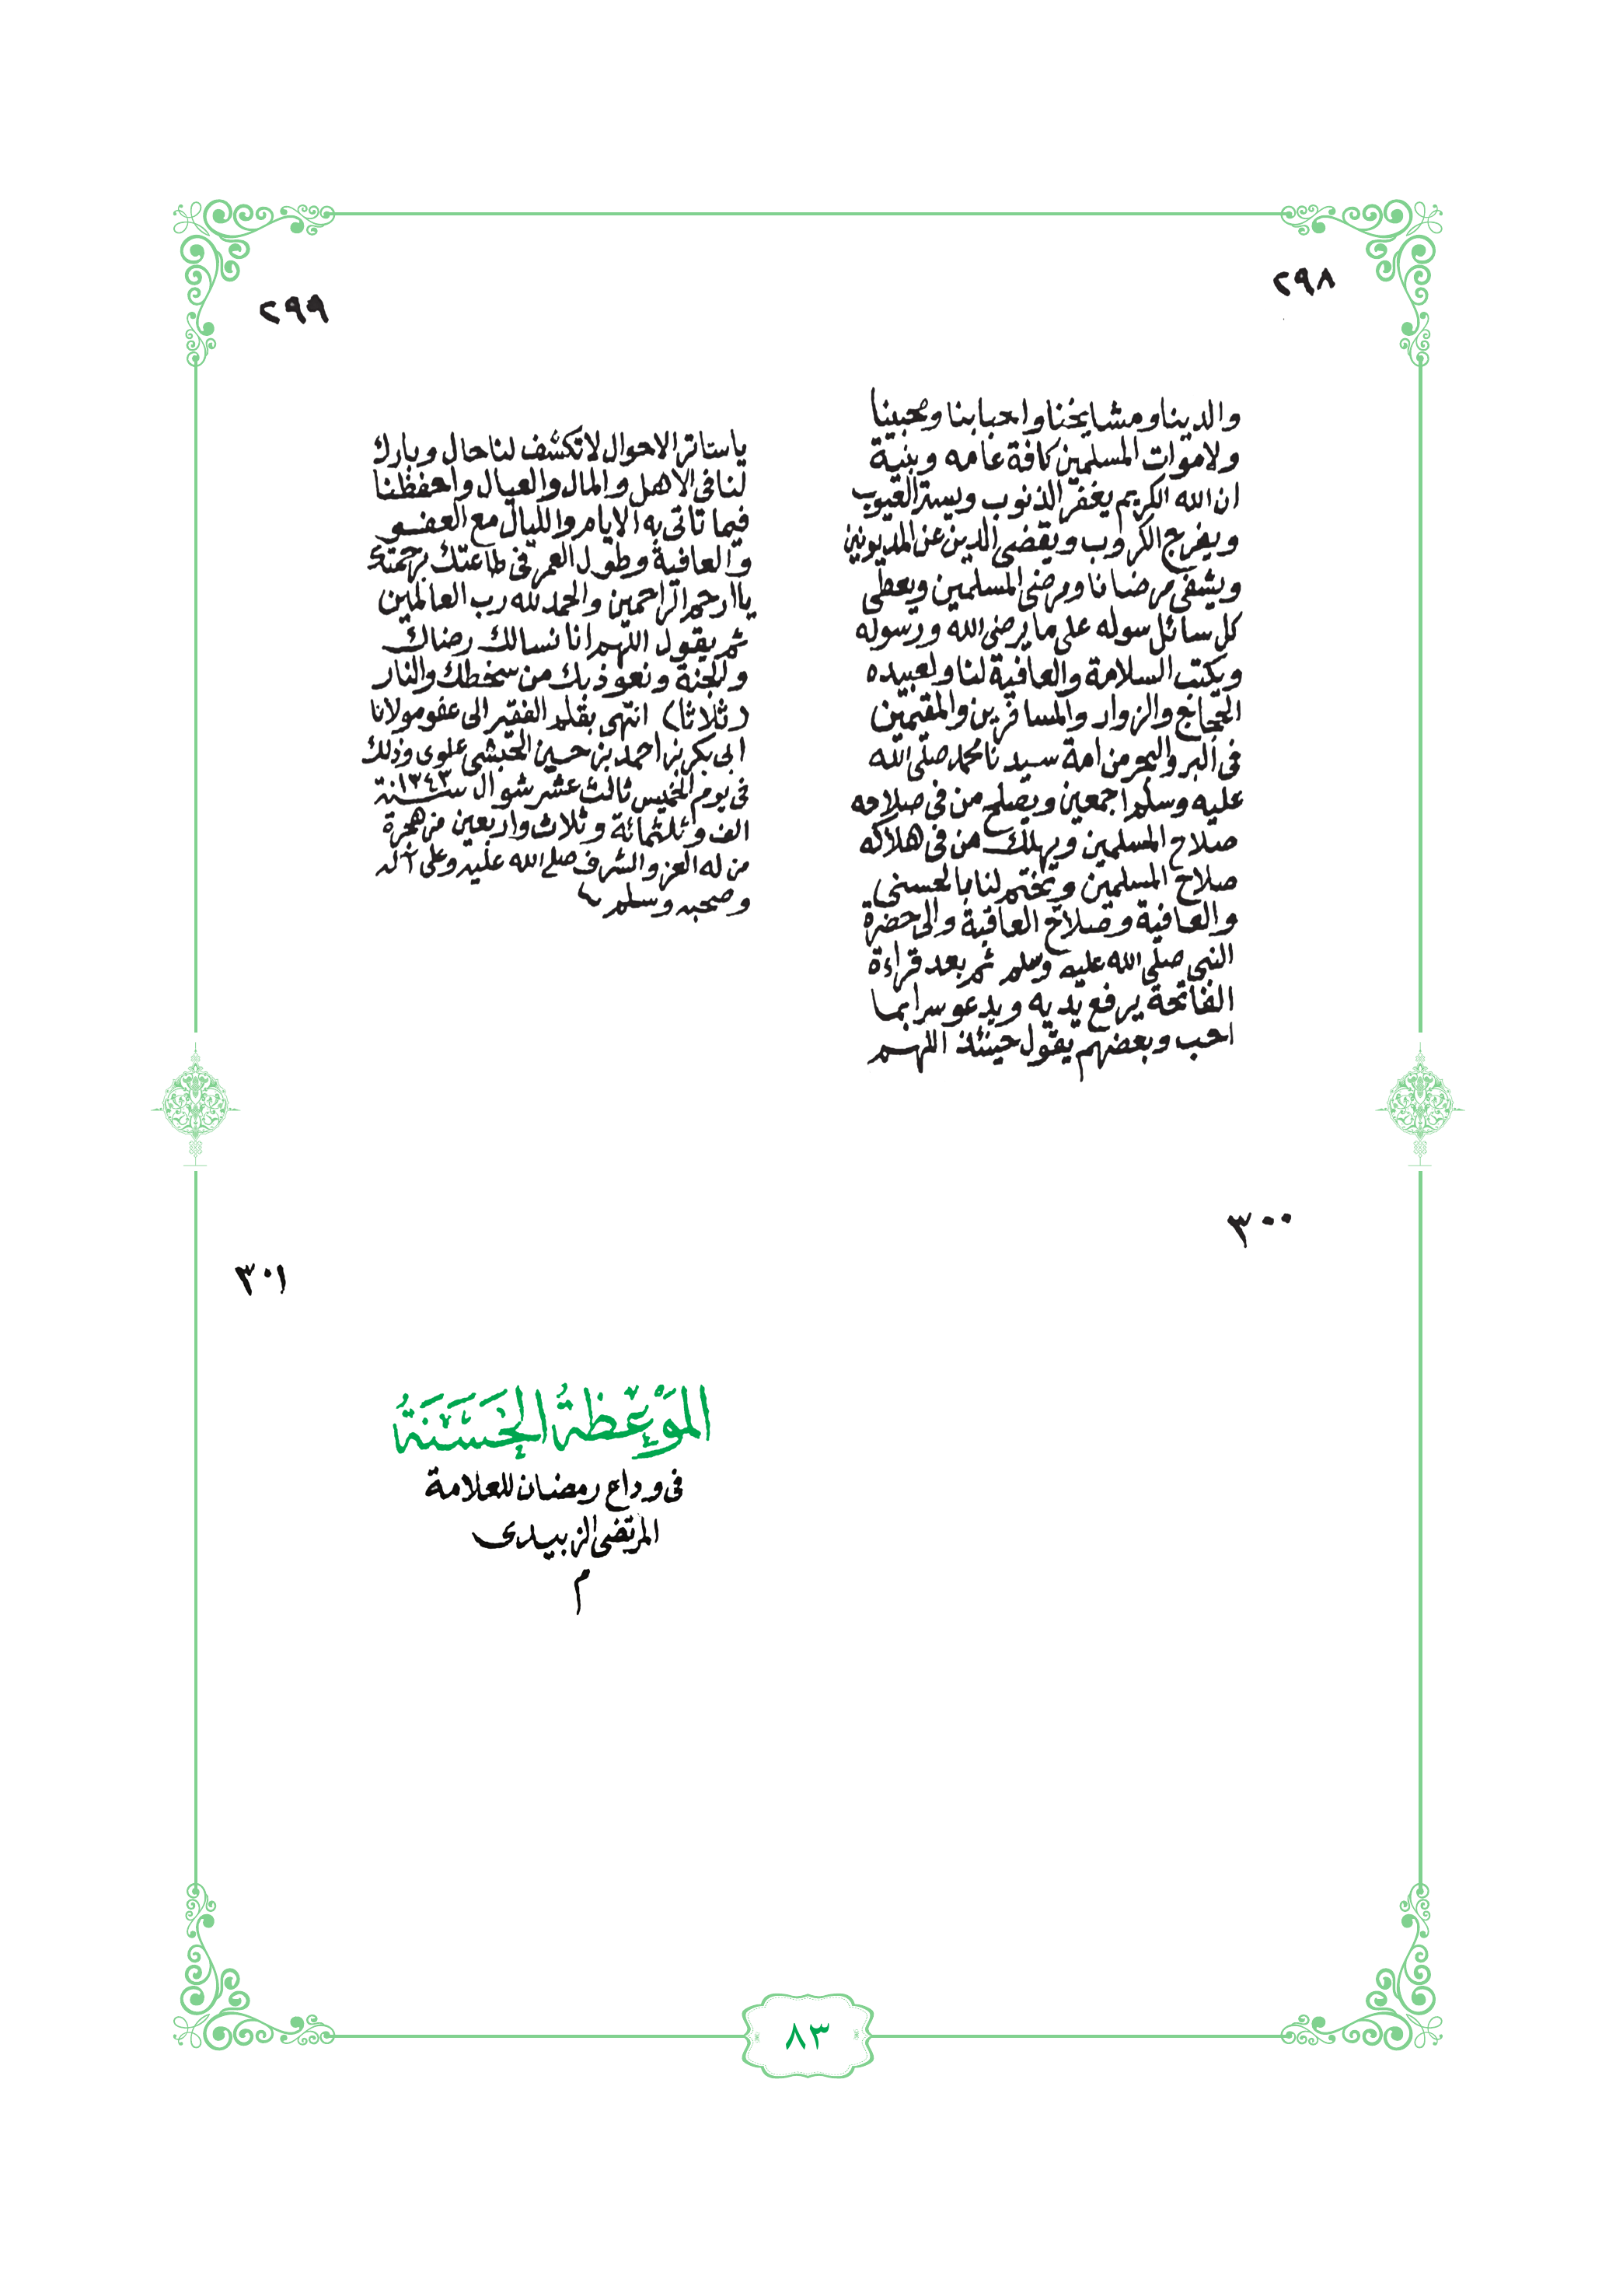 ٢٩٨
والدينا ومشايخنا واحبابنا ومحبينا
ولاموات المسلمين كافة عامه وبنية
ان الله الكريم يغفر الذنوب ويستر العيوب
ويفرج الكروب ويقضى الدين عن المديونين
ويشفى مرضانا ومرضى المسلمين ويعطى
كل سائل سوله على ما يرضى الله ورسوله
ويكتب السلامة والعافية لنا ولعبيده
الحجاج والزوار والمسافرين والمقيمين
فى البر والبحر من امة سيدنا محمد صلى الله
عليه وسلم اجمعين ويصلح من فى صلاحه
صلاح المسلمين ويهلك من فى هلاكه
صلاح المسلمين ويختم لنا بالحسنى
والعافية وصلاح العاقبة والى حضرة
النبى صلى الله عليه وسلم ثم بعد قراءة
الفاتحة يرفع يديه ويدعو سرا بما
احب وبعضهم يقول حينئذ اللهم
٢٩٩
يا ساتر الاحوال لا تكشف لنا حال وبارك
لنا فى الاهل والمال والعيال واحفظنا
فيما تاتى به الايام والليال مع العفو
والعافية وطول العمر فى طاعتك برحمتك
يا ارحم الراحمين والحمد لله رب العالمين
ثم يقول اللهم انا نسالك رضاك
والجنة ونعوذ بك من سخطك والنار
(ثلاثا) انتهى بقلم الفقير الى عفو مولانا
ابى بكر بن احمد بن حسين الحبشى علوى وذلك
فى يوم الخميس ثالث عشر شوال سنة ١٣٤٣
الف وثلثمائة وثلاث واربعين من هجرة
من له العز والشرف صلى الله عليه وعلى آله
وصحبه وسلم
٣٠٠
٣٠١
الموَْعِظةُ الحَسَنَةُ
فى وداع رمضان للعلامة
المرتضى الزبيدى
م
٨٣